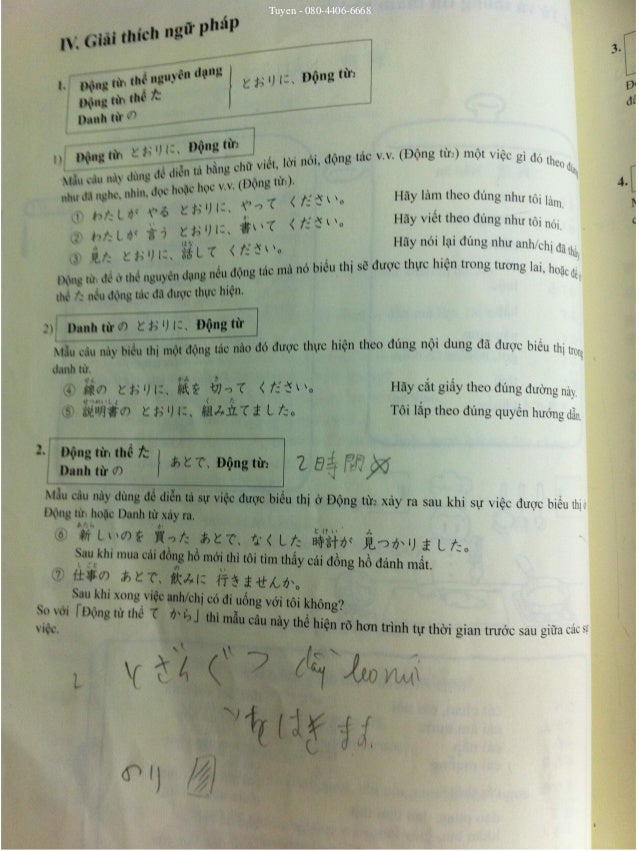 Tuyen - 080-4406-6668
IV. Giải thích ngữ pháp
1. Động từ₁ thể nguyên dạng
Động từ₁ thể た
Danh từ の
とおりに、Động từ₂
1) Động từ₁ とおりに、Động từ₂
Mẫu câu này dùng để diễn tả bằng chữ viết, lời nói, động tác v.v. (Động từ₂) một việc gì đó theo đúng
như đã nghe, nhìn, đọc hoặc học v.v. (Động từ₁).
① わたしが やる とおりに、やって ください。 Hãy làm theo đúng như tôi làm.
② わたしが 言う とおりに、書いて ください。 Hãy viết theo đúng như tôi nói.
③ 見た とおりに、話して ください。 Hãy nói lại đúng như anh/chị đã thấy
Động từ₁ để ở thể nguyên dạng nếu động tác mà nó biểu thị sẽ được thực hiện trong tương lai, hoặc để ở
thể た nếu động tác đã được thực hiện.
2) Danh từ の とおりに、Động từ
Mẫu câu này biểu thị một động tác nào đó được thực hiện theo đúng nội dung đã được biểu thị trong
danh từ.
④ 線の とおりに、紙を 切って ください。 Hãy cắt giấy theo đúng đường này.
⑤ 説明書の とおりに、組み立てました。 Tôi lắp theo đúng quyển hướng dẫn.
2. Động từ₁ thể た
Danh từ の
あとで、Động từ₂
2時間
Mẫu câu này dùng để diễn tả sự việc được biểu thị ở Động từ₂ xảy ra sau khi sự việc được biểu thị ở
Động từ₁ hoặc Danh từ xảy ra.
⑥ 新しいのを 買った あとで、なくした 時計が 見つかりました。
Sau khi mua cái đồng hồ mới thì tôi tìm thấy cái đồng hồ đánh mất.
⑦ 仕事の あとで、飲みに 行きませんか。
Sau khi xong việc anh/chị có đi uống với tôi không?
So với「Động từ thể て から」thì mẫu câu này thể hiện rõ hơn trình tự thời gian trước sau giữa các sự
việc.
とざんぐつ dây leo núi
をはきます
のり
3.
4.